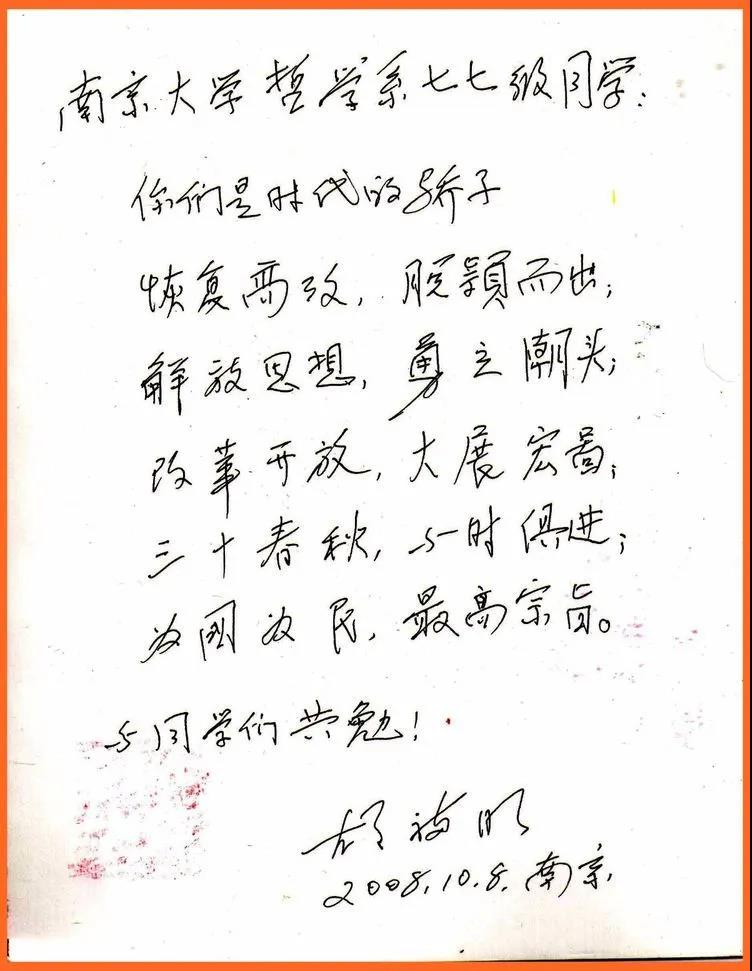 南京大学哲学系七七级同学:
你们是时代的骄子
恢复高考,脱颖而出;
解放思想,勇立潮头;
改革开放,大展宏图;
三十春秋,与时俱进;
为国为民,最高宗旨。
与同学们共勉!
胡福明
2008.10.8.南京